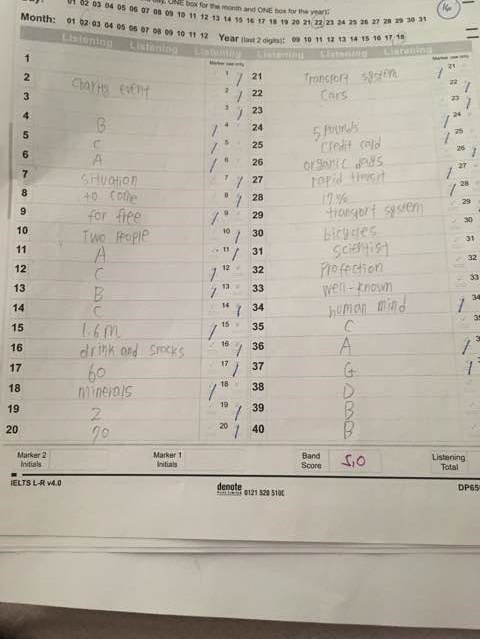 ONE box for the month and ONE box for the year):
01 02 03 04 05 06 07 08 09 10 11 12 13 14 15 16 17 18 19 20 21 22 23 24 25 26 27 28 29 30 31
Month: 01 02 03 04 05 06 07 08 09 10 11 12 Year (last 2 digits): 09 10 11 12 13 14 15 16 17 18
Listening Listening Listening Listening Listening Listening
Marker use only Marker use only
1 1 21 Transport system 21
2 Charity event 2 22 Cars 22
3 3 23 23
4 B 4 24 5 pounds 24
5 C 5 25 credit cald 25
6 A 6 26 organic days 26
7 situation 7 27 rapid transit 27
8 to come 8 28 17% 28
9 for free 9 29 transport system 29
10 Two people 10 30 bicycles 30
11 A 11 31 scientist 31
12 C 12 32 Profection 32
13 B 13 33 well-known 33
14 C 14 34 human mind 34
15 1.6m 15 35 C
16 drink and snacks 16 36 A
17 60 17 37 G
18 minerals 18 38 D
19 2 19 39 B
20 70 20 40 B
Marker 2 Initials Marker 1 Initials Band Score 5,0 Listening Total
IELTS L-R v4.0 denote 0121 520 5100 DP65